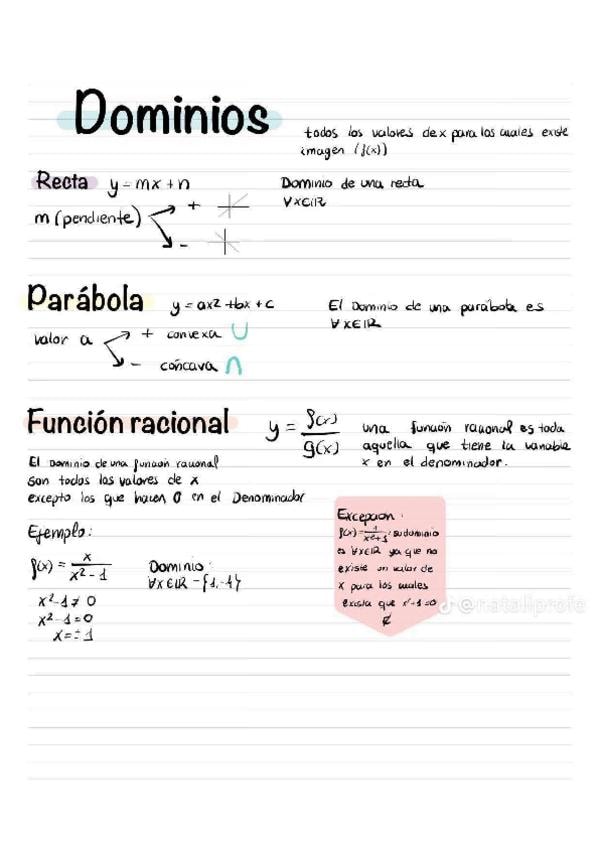 Dominios
todos los valores de x para los cuales existe
imagen (f(x))
Recta y = mx + n
Dominio de una recta
∀x∈ℝ
m (pendiente)
+
-
Parábola y = ax2 + bx + c
El Dominio de una parábola es
∀x∈ℝ
valor a
+ convexa ∪
- cóncava ∩
Función racional
y = f(x)/g(x)
una función racional es toda
aquella que tiene la variable
x en el denominador.
El Dominio de una función racional
son todos los valores de x
excepto los que hacen 0 en el Denominador
Ejemplo:
f(x) = x/x²-1
Dominio:
∀x∈ℝ - {1,-1}
x²-1 ≠ 0
x²-1 = 0
x = ±1
Excepción:
f(x) = 1/x²+1; su dominio
es ∀x∈ℝ ya que no
existe un valor de
x para los cuales
exista que x²+1=0
@nataliprofe